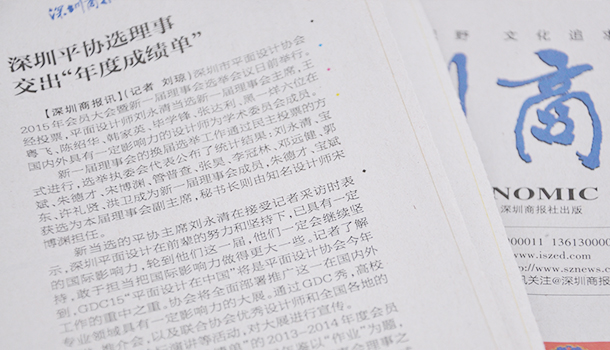 深圳商报
深圳平协选理事
交出“年度成绩单”
【深圳商报讯】(记者 刘琼)深圳市平面设计协会
2015年会员大会暨新一届理事会选举会议日前举行。
经投票，平面设计师刘永清当选新一届理事会主席，王
粤飞、陈绍华、韩家英、毕学锋、张达利、黑一烊六位在
国内外具有一定影响力的设计师为学术委员会成员。
新一届理事会的换届选举工作通过民主投票的方
式进行，选举执委会代表公布了统计结果：刘永清、宝
斌、朱德才、宋博渊、管晋查、张昊、李冠林、邓远健、郭
东、许礼贤、洪卫成为新一届理事会成员，朱德才、宝斌
获选为本届理事会副主席，秘书长则由知名设计师宋
博渊担任。
新当选的平协主席刘永清在接受记者采访时表
示，深圳平面设计在前辈的努力和坚持下，已具有一定
的国际影响力，轮到他们这一届，他们一定会继续坚
持，敢于担当把国际影响力做得更大一些。记者了解
到，GDC15“平面设计在中国”将是平面设计协会今年
工作的重中之重，协会将全面部署推广这一在国内外
专业领域具有一定影响力的大展。通过GDC秀、高校
演讲等活动，对大展进行宣传。
野 文化追求
商
NOMIC
深圳商报社出版
000011 13613000
www.iszed.com
http://www.sznews.
关注@深圳商报